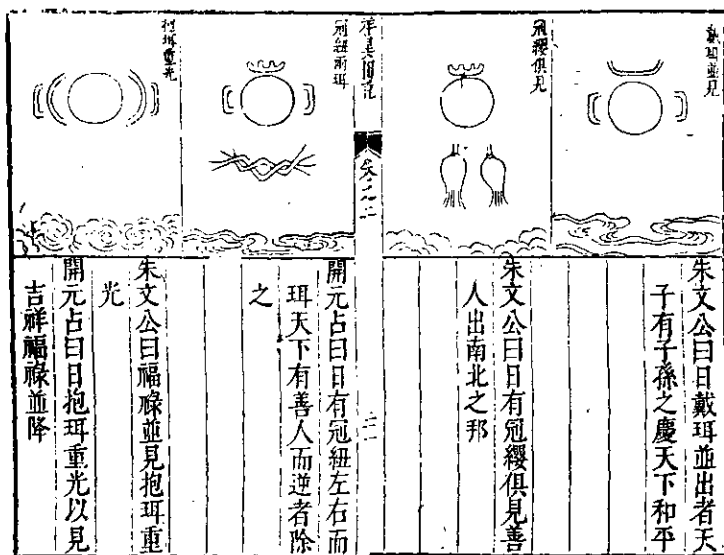 戴珥並見
朱文公曰日戴珥並出者天
子有子孫之慶天下和平
冠纓俱見
朱文公曰日有冠纓俱見善
人出南北之邦
祥異圖說
卷之二
冠紐兩珥
開元占曰日有冠紐左右而
珥天下有善人而逆者除
之
抱珥重光
朱文公曰福祿並見抱珥重
光
開元占曰日抱珥重光以見
吉祥福祿並降